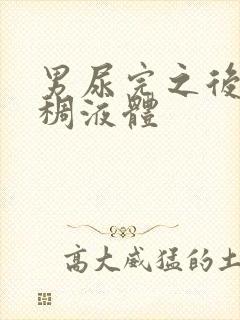 男尿完之後
稠液體
高大威猛的土